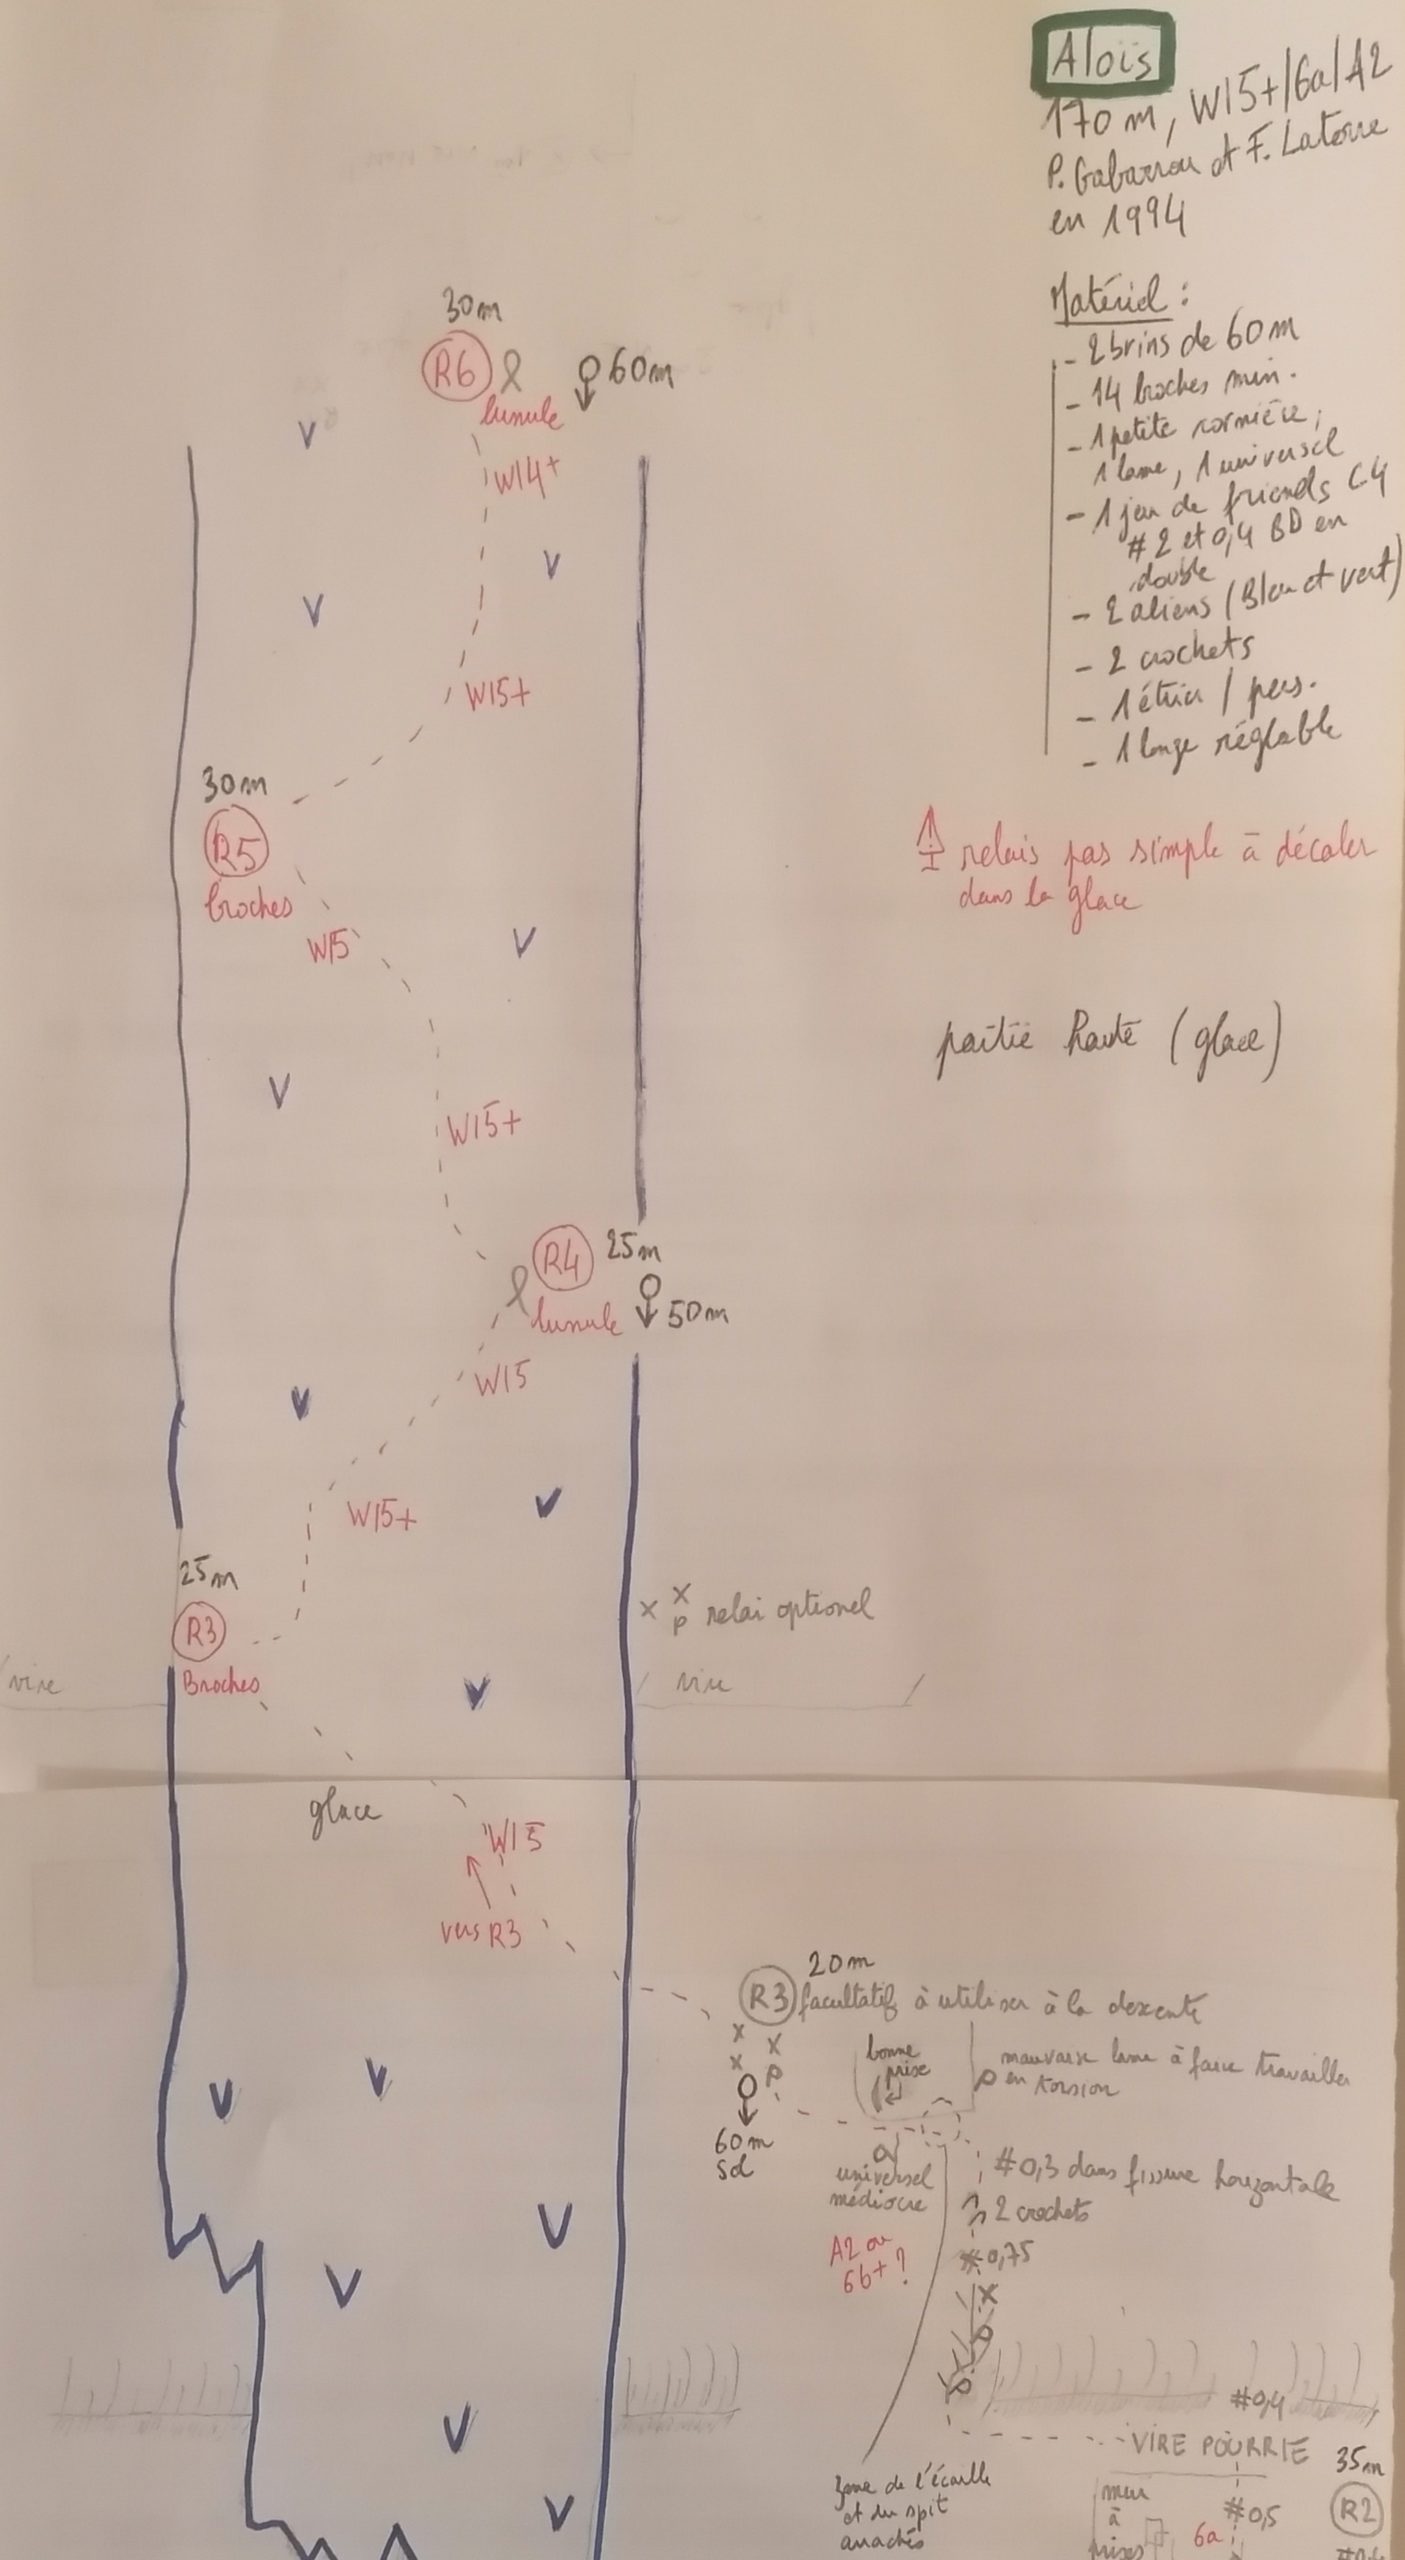 Aloïs
170 m, WI5+/6a/A2
P. Gabarrou et F. Latorre
en 1994
Matériel :
- 2 brins de 60 m
- 14 broches min.
- 1 petite cornière,
1 lame, 1 universel
- 1 jeu de friends C4
#2 et 0,4 BD en
double
- 2 aliens (Bleu et vert)
- 2 crochets
- 1 étrier / pers.
- 1 longe réglable
30m
R6
60m
lunule
WI4+
WI5+
30m
R5
broches
relais pas simple à décaler
dans la glace
WI5
partie haute (glace)
WI5+
R4
25m
lunule
50m
WI5
WI5+
25m
R3
relai optionel
Broches
vire
vire
glace
WI5
vers R3
20m
R3
facultatif à utiliser à la descente
bonne
prise
mauvaise lame à faire travailler
en torsion
60m
sol
universel
médiocre
#0,3 dans fissure horizontale
2 crochets
A2 ou
6b+ ?
0,75
#0,4
VIRE POURRIE
35m
zone de l'écaille
et du spit
arrachés
mur
à
prises
6a
#0,5
R2